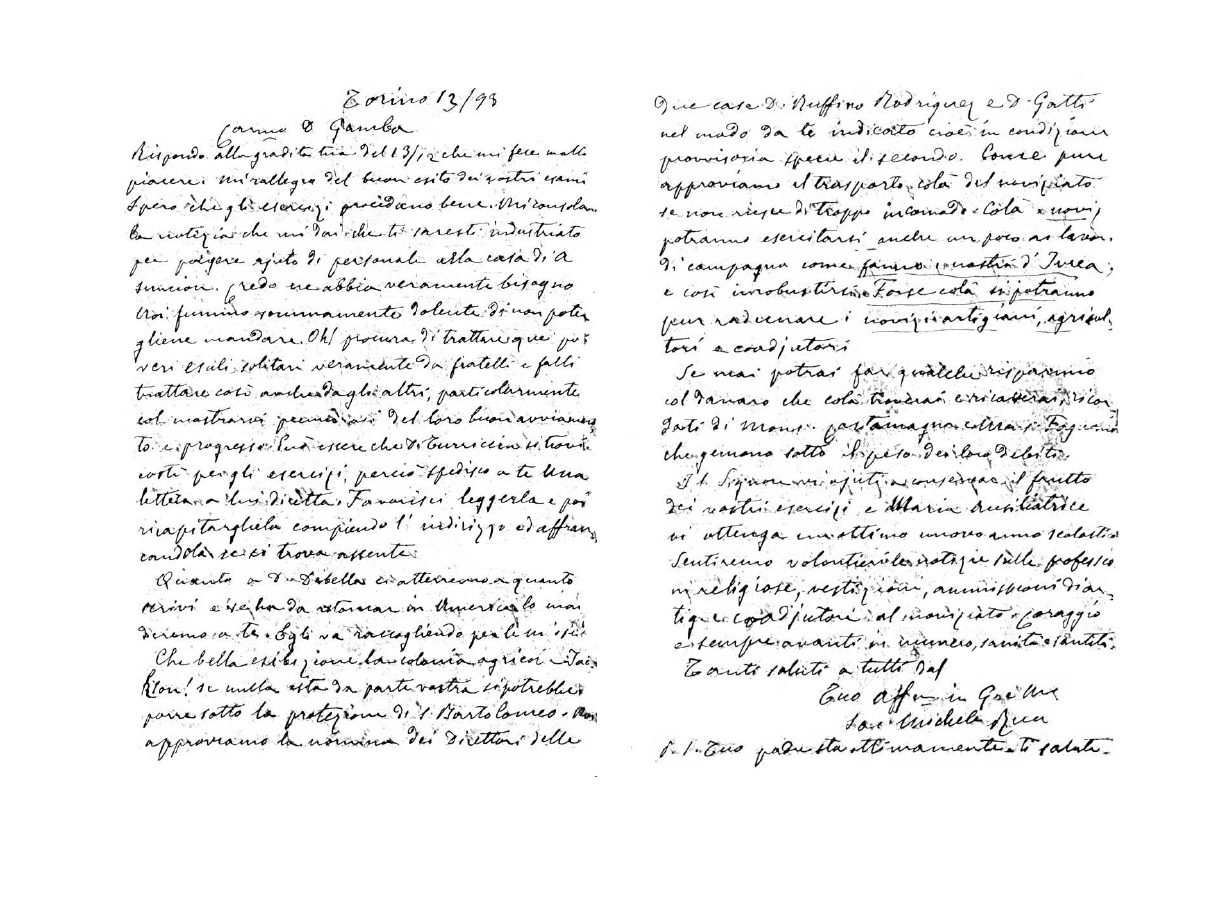 Torino 13/98
Carmo D Gamba
Rispondo alla gradita tua del 13/12 che mi fece molto
piacere. Mi rallegro del buon esito dei vostri esami
Spero che gli esercizi procedano bene. Mi consola
la notizia che mi dai che ti saresti industriato
per porgere ajuto di personale alla casa di A
suncion. Credo ne abbia veramente bisogno
Noi fummo sommamente dolenti di non poter
gliene mandare. Oh! procura di trattare que po
veri esuli solitari veramente da fratelli e falli
trattare così anche dagli altri, particolarmente
col mostrarvi del loro buon avviamen
to e progresso. Può essere che D. Turriccia si trovi
costì per gli esercizi, perciò spedisco a te una
lettera a lui diretta. Favorisci leggerla e poi
ricapitargliela compiendo l'indirizzo ed affran
candola se si trova assente.
Quanto a D. Dabella ci atterremo a quanto
scrivi e se ha da ritornar in America lo man
deremo a te. Egli va raccogliendo per le missioni
Che bella esibizione la colonia agricola Jack
son! se nulla osta da parte vostra si potrebbe
porre sotto la protezione di S. Bartolomeo. Noi
approviamo la nomina dei Direttori delle
Due case D. Ruffino Rodriguez e D. Gatti
nel modo da te indicato cioè in condizione
provvisoria specie il secondo. Come pure
approviamo il trasporto colà del noviziato
se non riesce di troppo incomodo. Colà i novizj
potranno esercitarsi anche un poco ai lavori
di campagna come fanno i nostri d'Ivrea,
e così irrobustirsi. Forse colà si potranno
pur radunare i novizi artigiani, agricol
tori e coadjutori
Se mai potrai far qualche risparmio
col danaro che colà troverai e ricaverai, ricor
dati di Mons. Costamagna e Mons. Fagnano
che gemono sotto il peso dei loro debiti.
Il Signore vi ajuti a conservar il frutto
dei vostri esercizi e Maria Ausiliatrice
vi ottenga un ottimo nuovo anno scolastico
Sentiremo volontieri le notizie sulle professio
ni religiose, vestizioni, ammissioni di ar
tig. e coadjutori al noviziato. Coraggio
e sempre avanti in numero, sanità e santità.
Tanti saluti a tutti dal
Tuo affmo in G. e M.
Sac. Michele Rua
P.S. Tuo padre sta ottimamente e ti saluta.